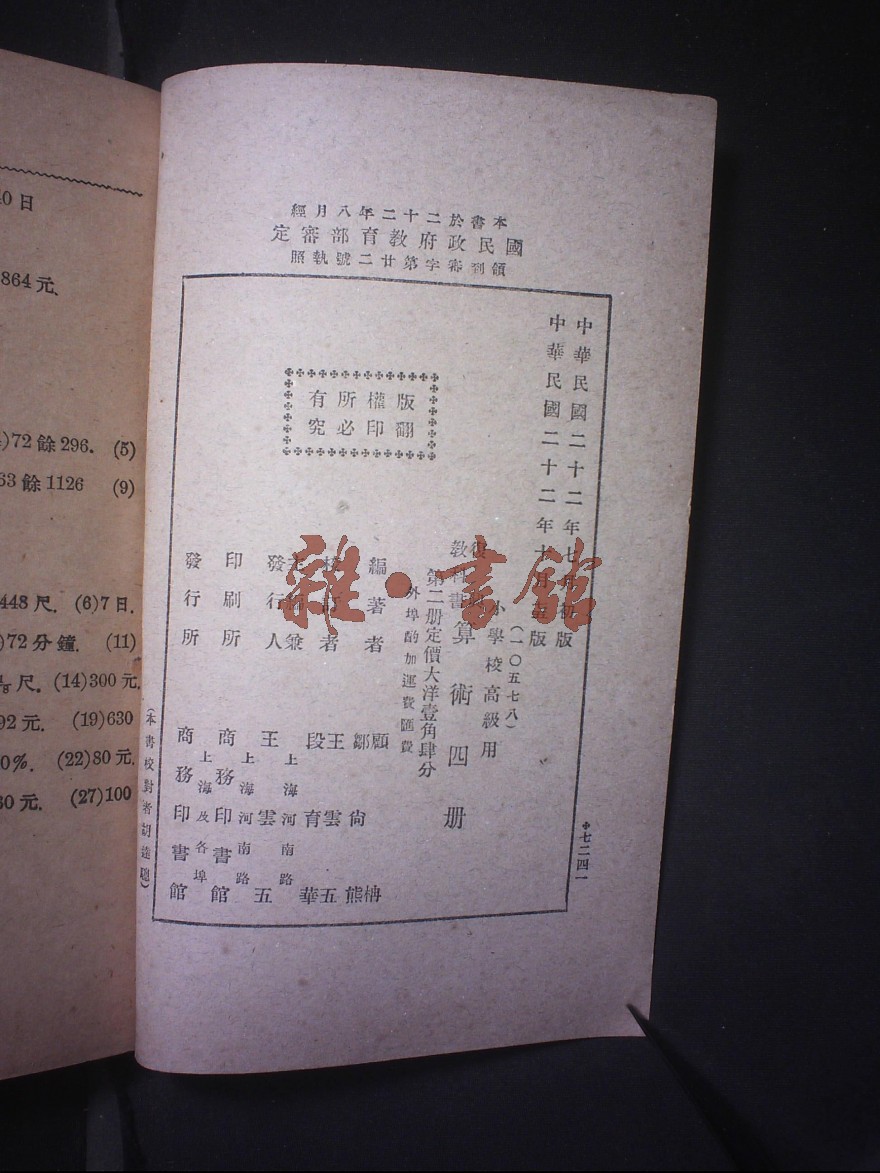 本書於二十二年八月經
國民政府教育部審定
領到審字第廿二號執照
中華民國二十二年七月初版
中華民國二十二年十月版
版權所有
翻印必究
小學校高級用
(一〇五七八)
教科書
算術四册
第二册定價大洋壹角肆分
外埠酌加運費匯費
編著者
顧 尙 枬
鄒 熊
校訂者
王雲五
段育華
主編兼
發行人
上海河南路
王雲五
印刷所
上海河南路
商務印書館
發行所
上海及各埠
商務印書館
七二四一
(本書校對者胡達聰)
雜·書館
0日
864元.
)72餘296. (5)
63餘1126 (9)
448尺. (6)7日.
)72分鐘. (11)
尺。(14)300元.
92元. (19)630
0%. (22)80元.
30元. (27)100